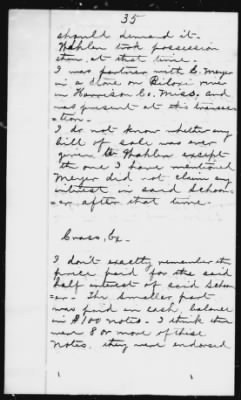 35
should demand it-
Hahlen took possession
then at that time.
I was partner with C. Meyer
in a store on Biloxi river
in Harrison Co. Miss. and
was present at this transac-
-tion-
I do not know whether any
bill of sale was ever
given to Hahlen except
the one I have mentioned
Meyer did not claim any
interest in said schoon-
-er after that time.
Cross, Ex-
I don't exactly remember the
price paid for the said
half interest of said schoon
-er- The smaller part
was paid in cash, balance
in $100 notes- I think there
were 8 or more of these
notes, they were endorsed